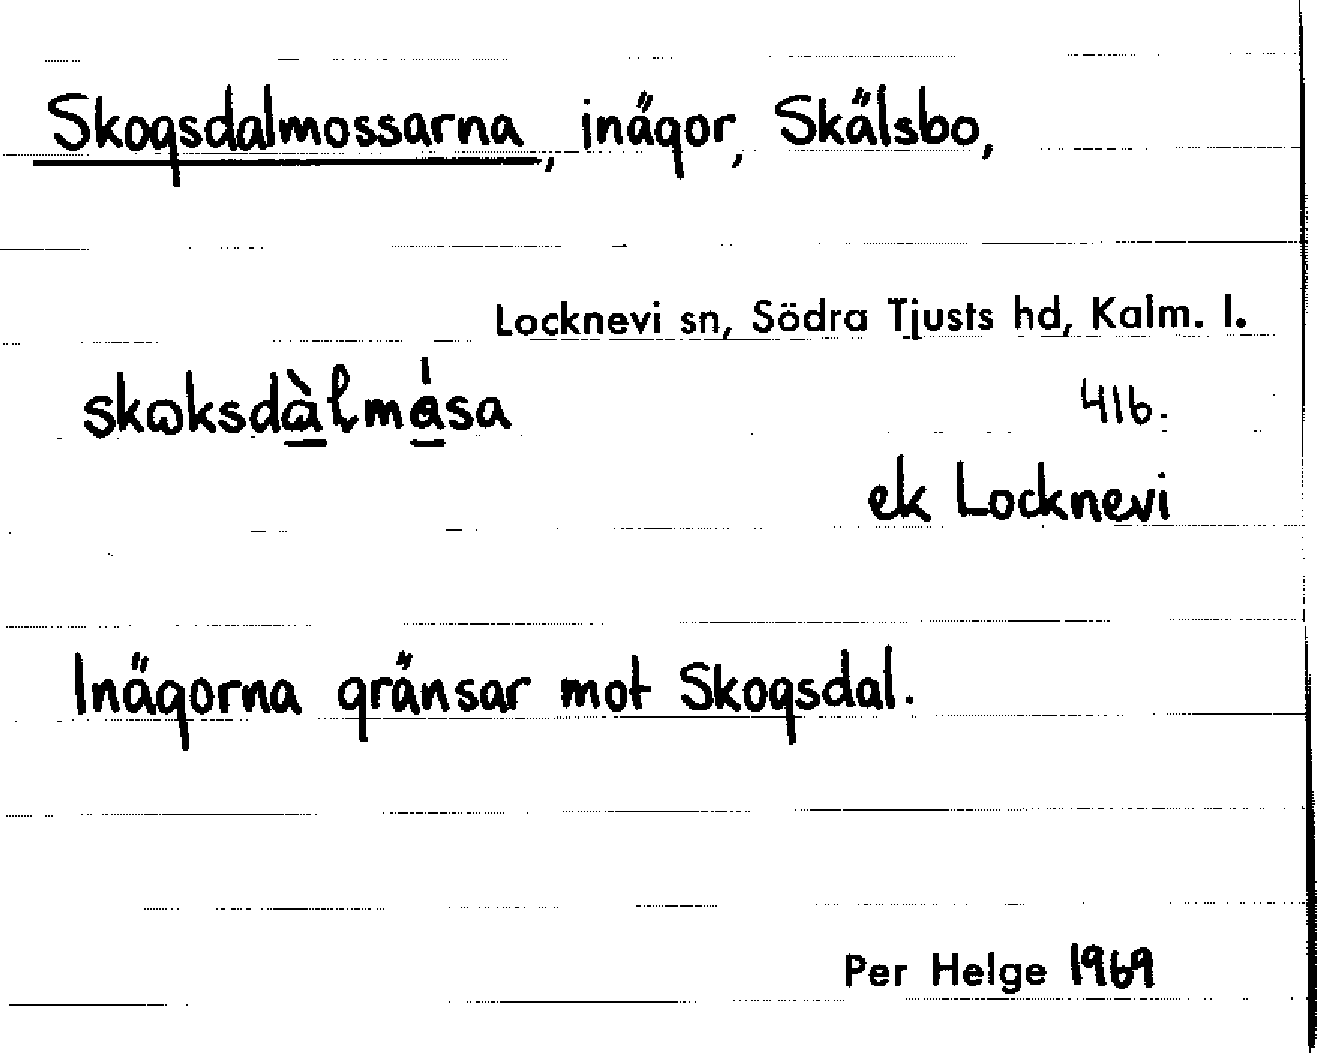 Skogsdalmossarna, inägor, Skälsbo,
Locknevi sn, Södra Tjusts hd, Kalm. l.
skɷksdàlmåsa
416.
ek Locknevi
Inägorna gränsar mot Skogsdal.
Per Helge 1969